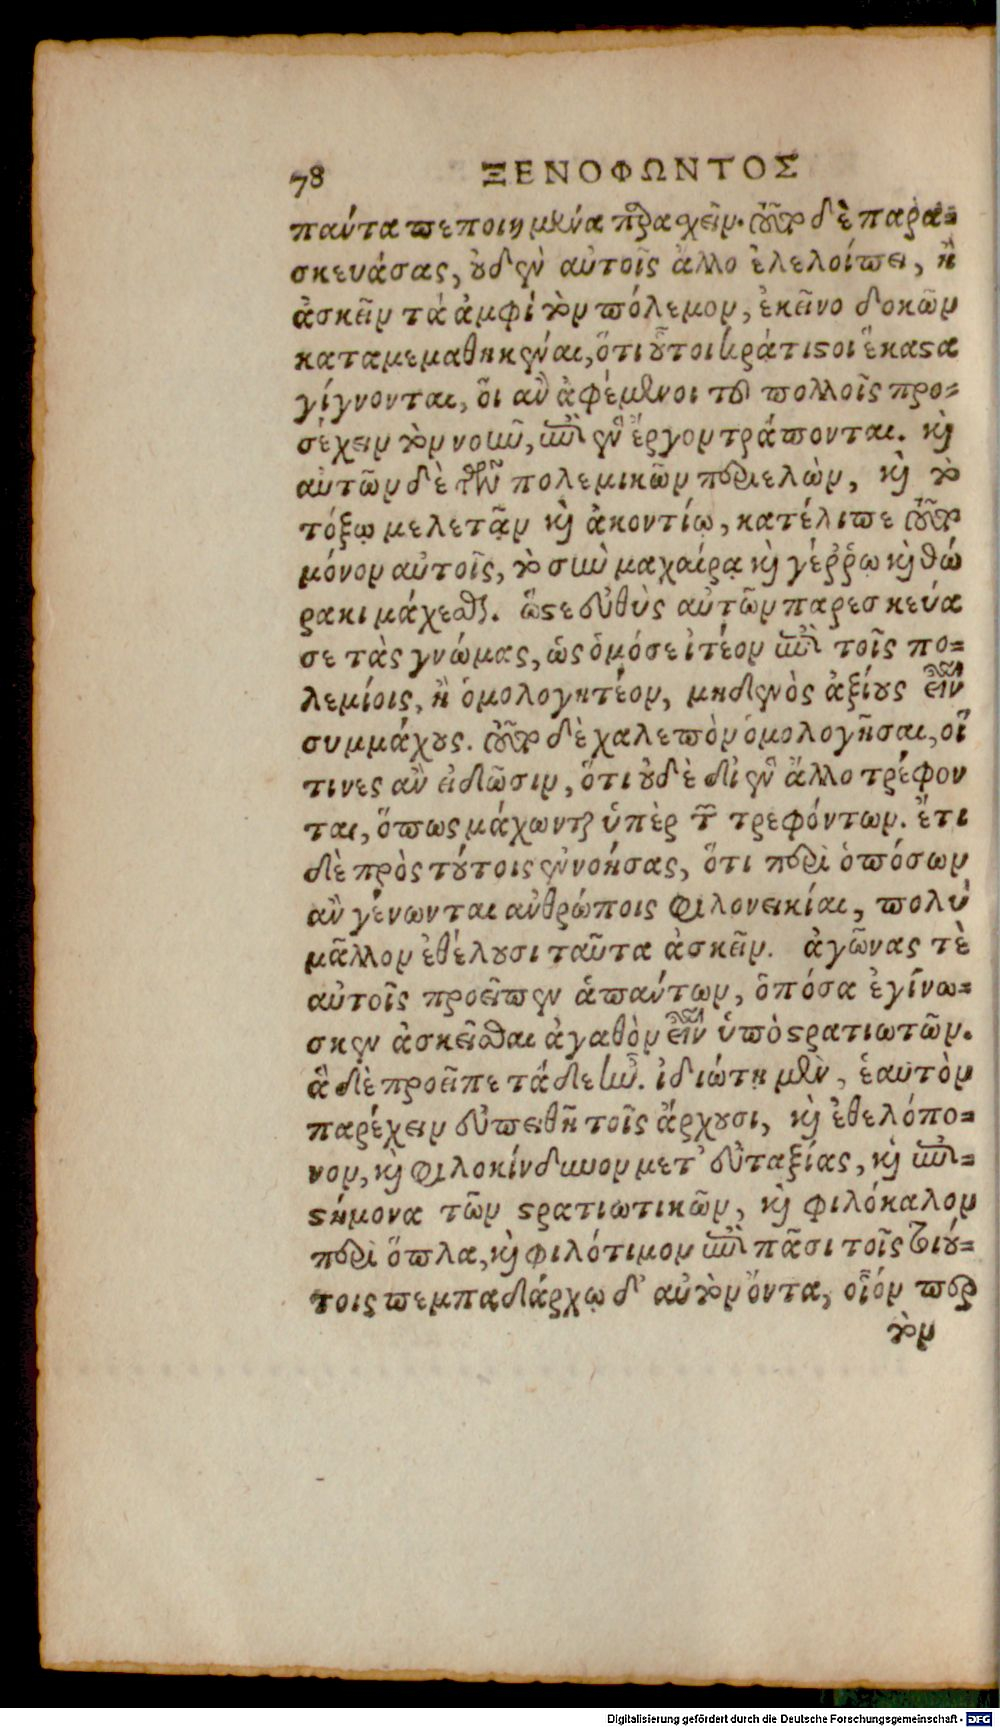 78 ΞΕΝΟΦΩΝΤΟΣ
πάντα πεποιημένα παρασχεῖν. τοῦτο δὲ παρα-
σκευάσας, οὐδὲν αὐτοῖς ἄλλο ἐλελοίπει, ἢ
ἀσκεῖν τὰ ἀμφὶ τὸν πόλεμον, ἐκεῖνο δοκῶν
καταμεμαθηκέναι, ὅτι οὗτοι κράτιστοι ἕκαστα
γίγνονται, οἳ ἂν ἀφέμενοι τοῦ πολλοῖς προ-
σέχειν τὸν νοῦν, ἐπὶ ἓν ἔργον τράπονται. καὶ
αὐτῶν δὲ τῶν πολεμικῶν περιελὼν, καὶ τὸ
τόξῳ μελετᾷν καὶ ἀκοντίῳ, κατέλιπε τοῦτο
μόνον αὐτοῖς, τὸ σὺν μαχαίρᾳ καὶ γέῤῥῳ καὶ θώ
ρακι μάχεσθαι. ὥστε εὐθὺς αὐτῶν παρεσκεύα
σε τὰς γνώμας, ὡς ὁμόσε ἰτέον ἐπὶ τοῖς πο-
λεμίοις, ἢ ὁμολογητέον, μηδενὸς ἀξίους εἶναι
συμμάχους. τοῦτο δὲ χαλεπὸν ὁμολογῆσαι, οἵ
τινες ἂν εἰδῶσιν, ὅτι οὐδὲ δι' ἓν ἄλλο τρέφον
ται, ὅπως μάχωνται ὑπὲρ τῶν τρεφόντων. ἔτι
δὲ πρὸς τούτοις ἐννοήσας, ὅτι περὶ ὁπόσων
ἂν γένωνται ἀνθρώποις φιλονεικίαι, πολὺ
μᾶλλον ἐθέλουσι ταῦτα ἀσκεῖν. ἀγῶνας τὲ
αὐτοῖς προεῖπεν ἁπάντων, ὁπόσα ἐγίνω-
σκεν ἀσκεῖσθαι ἀγαθὸν εἶναι ὑπὸ στρατιωτῶν.
ἃ δὲ προεῖπε τάδε ἦν. ἰδιώτῃ μὲν, ἑαυτὸν
παρέχειν εὐπειθῆ τοῖς ἄρχουσι, καὶ ἐθελόπο-
νον, καὶ φιλοκίνδυνον μετ' εὐταξίας, καὶ ἐπι-
στήμονα τῶν στρατιωτικῶν, καὶ φιλόκαλον
περὶ ὅπλα, καὶ φιλότιμον ἐπὶ πᾶσι τοῖς τοιού-
τοις πεμπαδάρχῳ δ' αὐτὸν ὄντα, οἷόν περ
τὸν
Digitalisierung gefördert durch die Deutsche Forschungsgemeinschaft - DFG